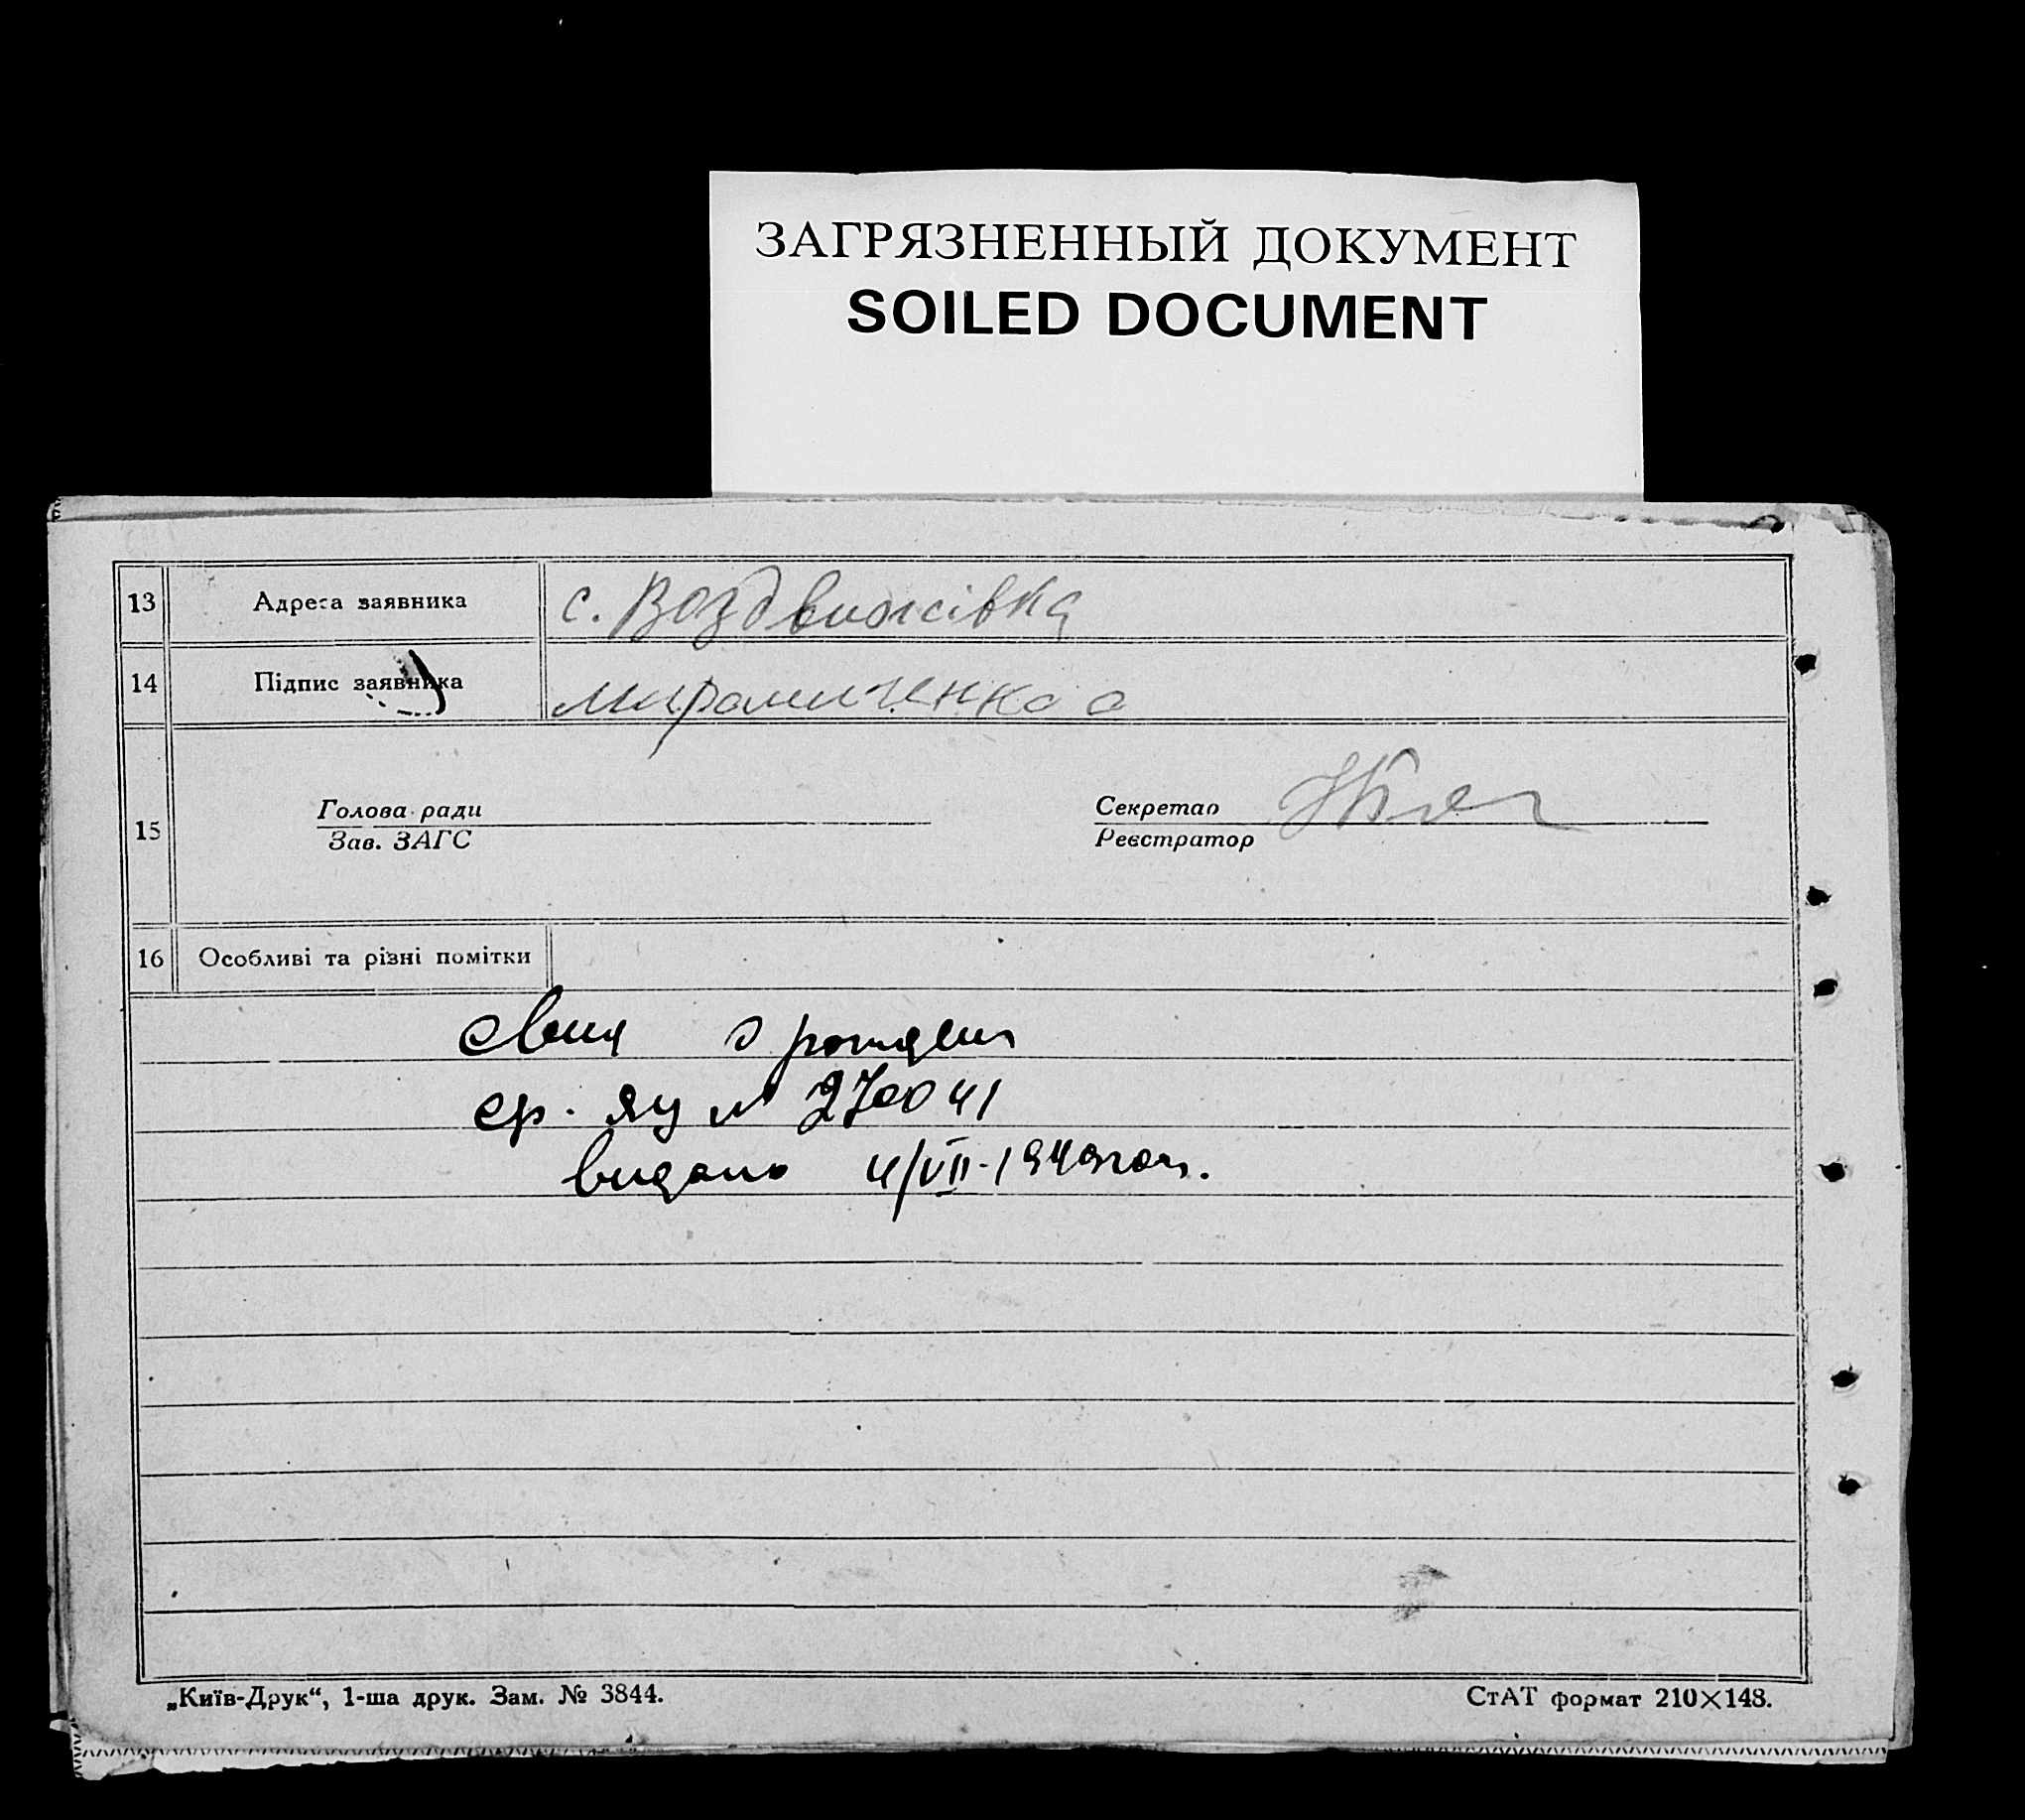 ЗАГРЯЗНЕННЫЙ ДОКУМЕНТ
SOILED DOCUMENT
13 Адреса заявника с. Воздвижівка
14 Підпис заявника
15 Голова ради Секретар
Зав. ЗАГС Реєстратор
16 Особливі та різні помітки
№ 270041
видано 4/VII-1949
„Київ-Друк“, 1-ша друк. Зам. № 3844. СтАТ формат 210×148.